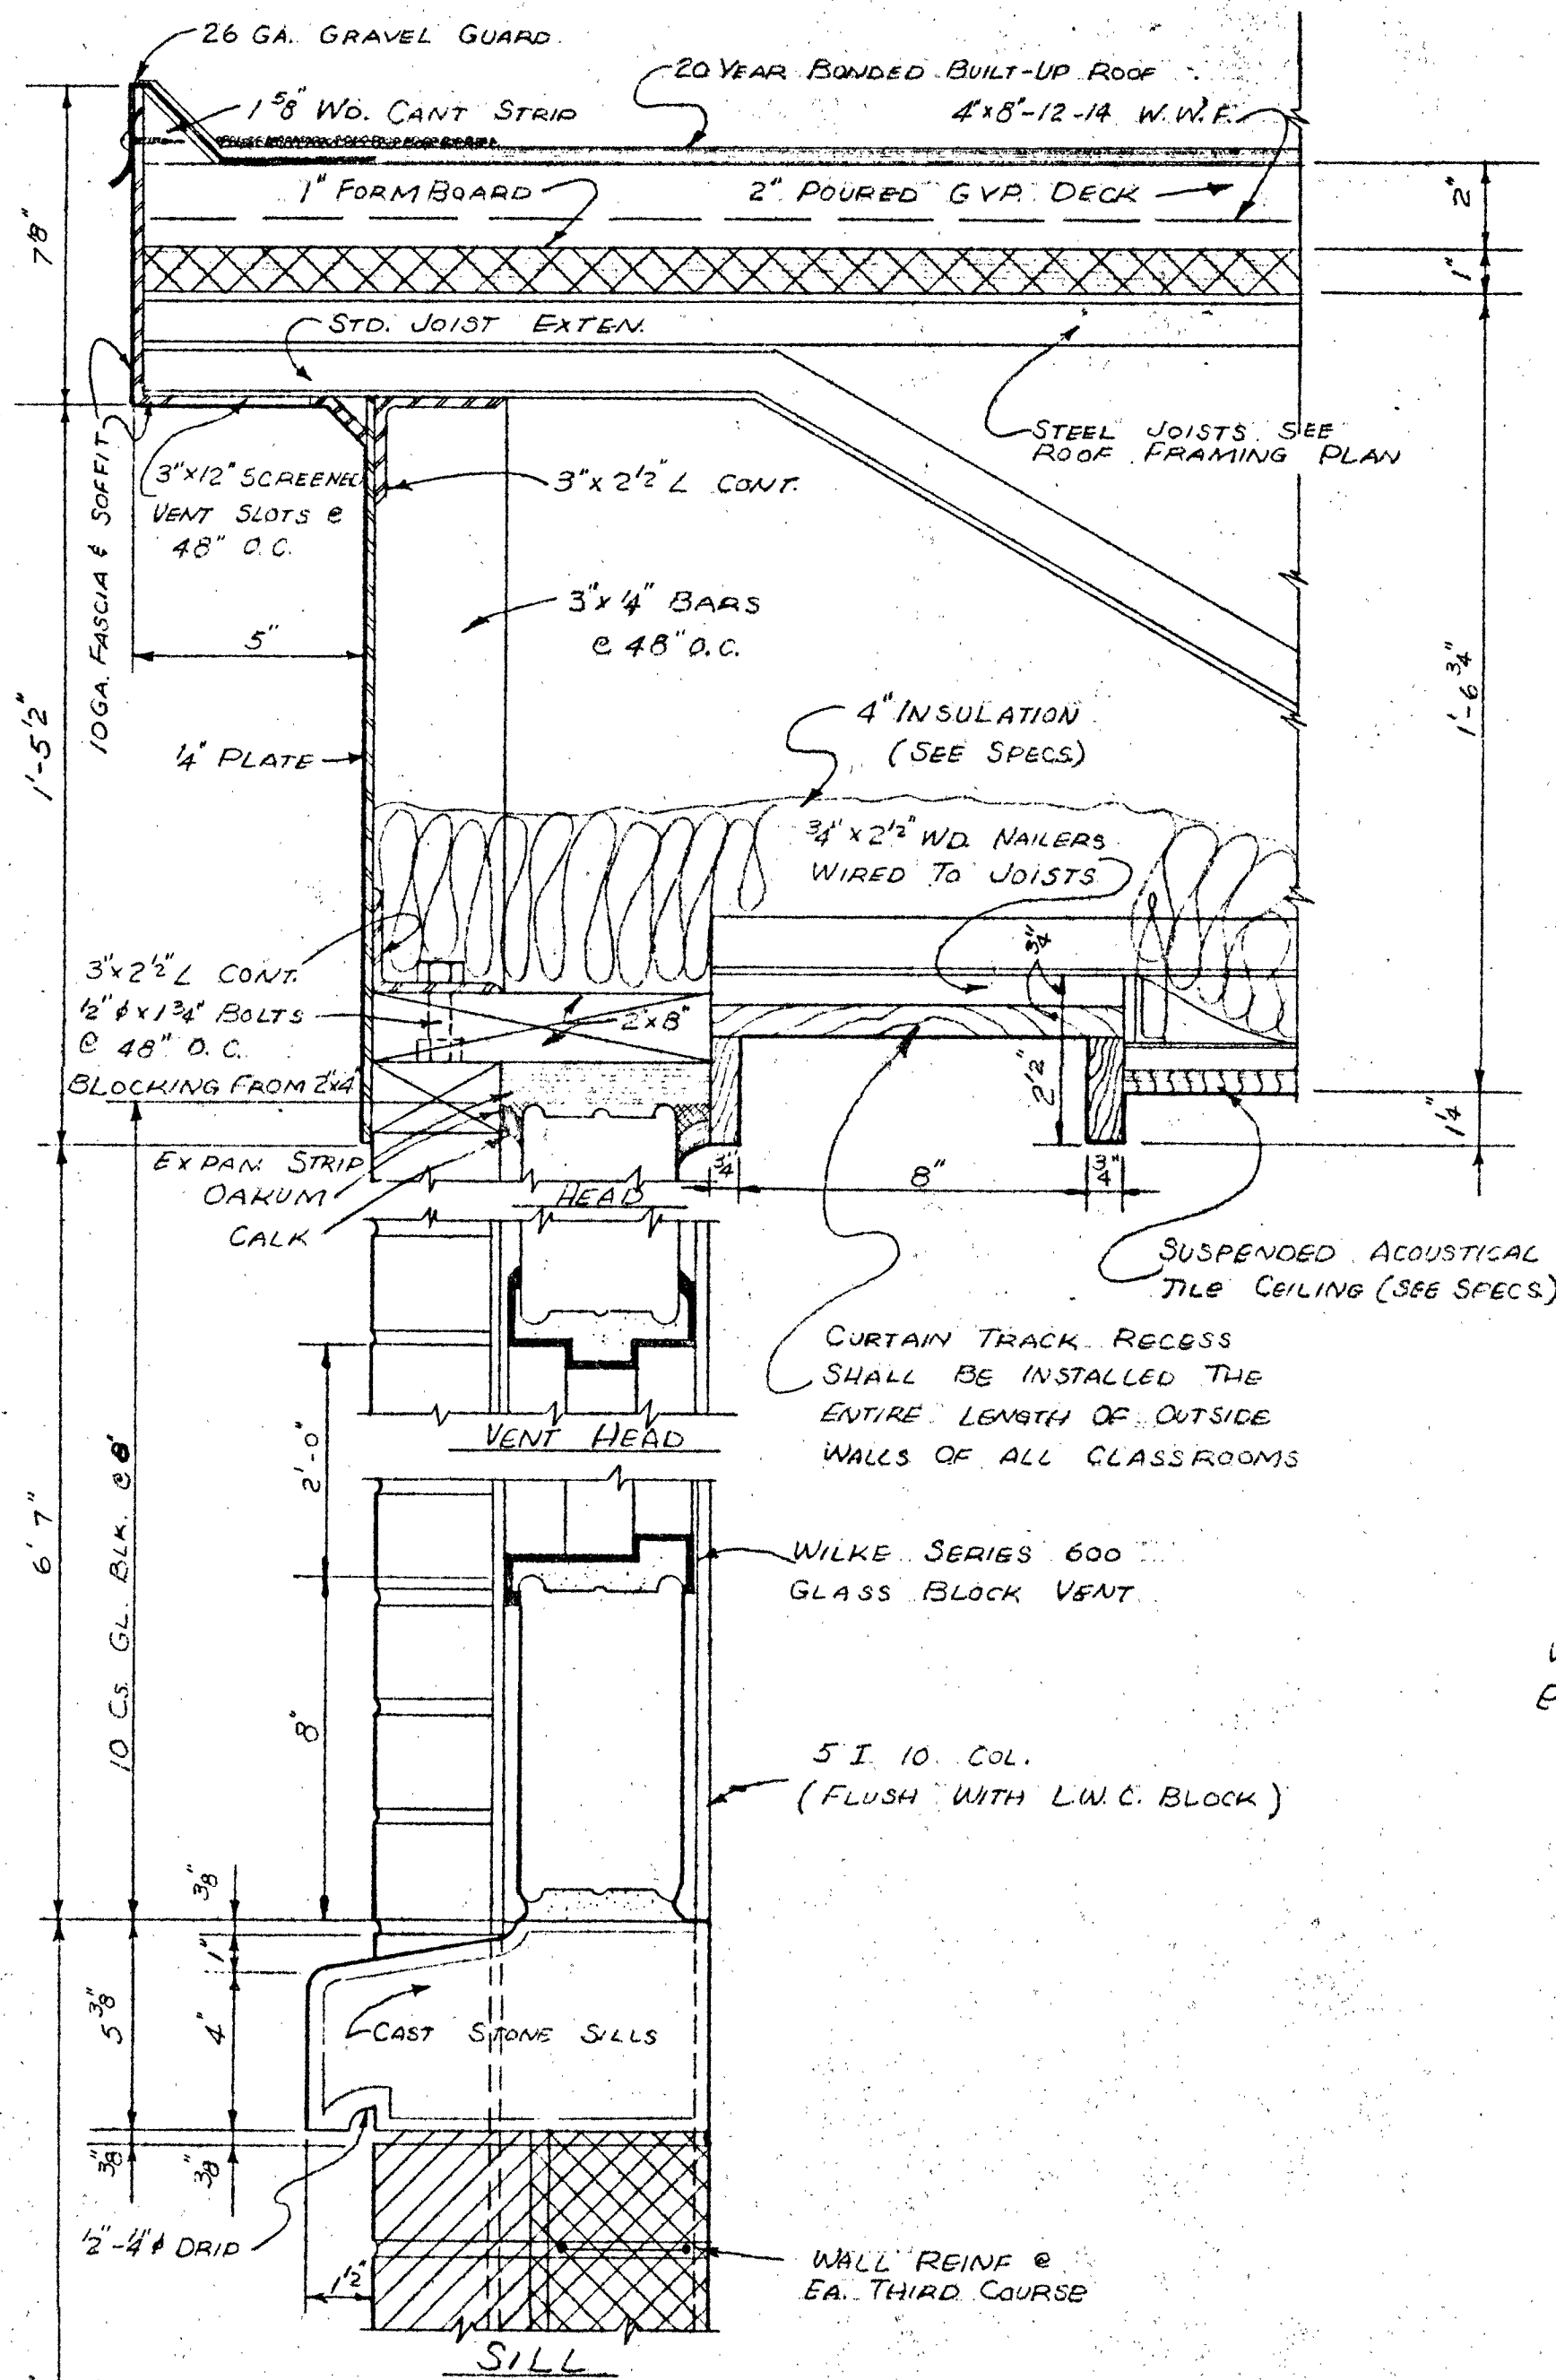 26 GA. GRAVEL GUARD
20 YEAR BONDED BUILT-UP ROOF
1 5/8" WD. CANT STRIP
4"x8"-12-14 W.W.F.
1" FORM BOARD
2" POURED GYP. DECK
2"
1"
78"
STD. JOIST EXTEN.
STEEL JOISTS SEE
ROOF FRAMING PLAN
10GA. FASCIA & SOFFIT
3"x12" SCREENED
VENT SLOTS @
48" O.C.
3"x 2 1/2" L CONT.
3"x 1/4" BARS
@ 48" O.C.
5"
1'-5 1/2"
1'-6 3/4"
1/4" PLATE
4" INSULATION
(SEE SPECS)
3/4" x 2 1/2" WD. NAILERS
WIRED TO JOISTS
3/4"
3"x 2 1/2" L CONT.
1/2" φ x 1 3/4" BOLTS
@ 48" O.C.
2"x8"
BLOCKING FROM 2"x4"
2 1/2"
1 1/4"
EXPAN. STRIP
OAKUM
CALK
HEAD
3/4"
8"
3/4"
SUSPENDED ACOUSTICAL
TILE CEILING (SEE SPECS)
CURTAIN TRACK RECESS
SHALL BE INSTALLED THE
ENTIRE LENGTH OF OUTSIDE
WALLS OF ALL CLASSROOMS
VENT HEAD
2'-0"
6' 7"
10 CS. GL. BLK. @ 8"
WILKE SERIES 600
GLASS BLOCK VENT
8"
5 I 10 COL.
(FLUSH WITH L.W.C. BLOCK)
3/8"
1"
5 3/8"
4"
CAST STONE SILLS
3/8"
3/8"
1/2"-1/4" φ DRIP
1 1/2"
WALL REINF @
EA. THIRD COURSE
SILL